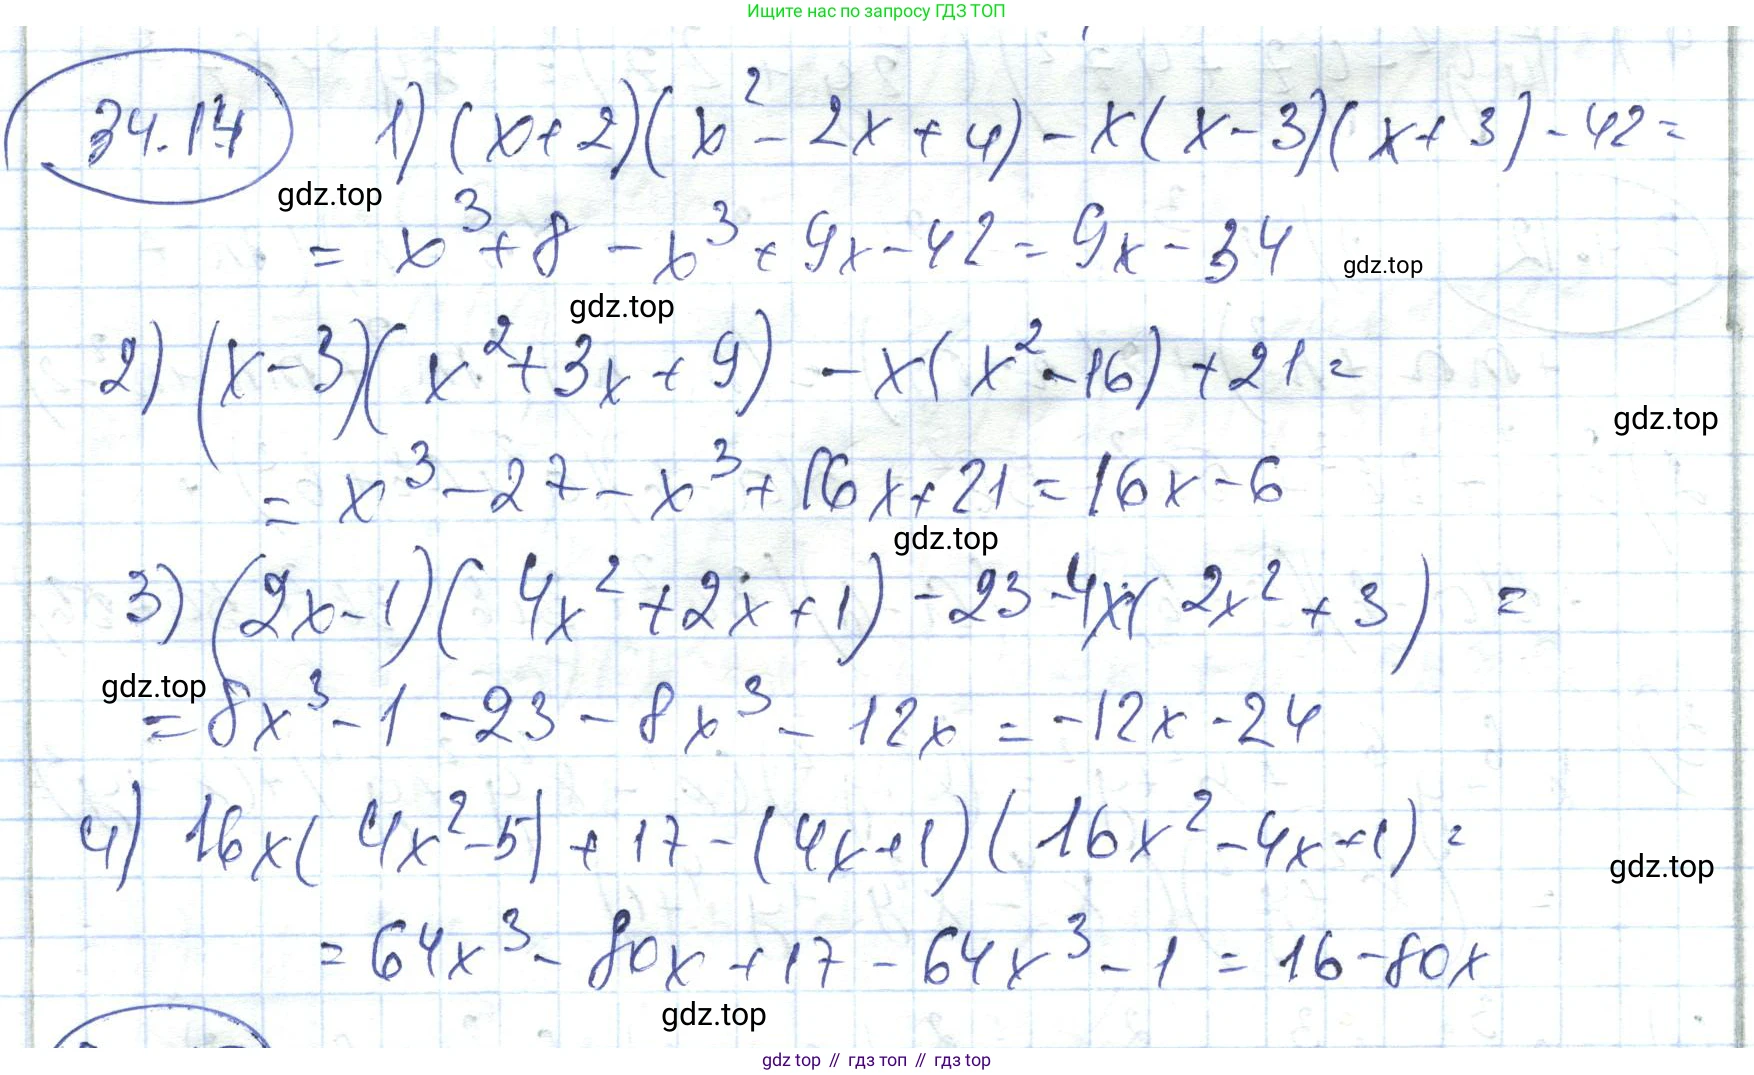 Ищите нас по запросу ГДЗ ТОП
34.14 1) (x+2)(x² - 2x + 4) - x(x-3)(x+3) - 42 =
gdz.top
= x³ + 8 - x³ + 9x - 42 = 9x - 34
gdz.top
gdz.top
2) (x-3)(x² + 3x + 9) - x(x² - 16) + 21 =
gdz.top
= x³ - 27 - x³ + 16x + 21 = 16x - 6
gdz.top
3) (2x-1)(4x² + 2x + 1) - 23 - 4x(2x² + 3) =
gdz.top
= 8x³ - 1 - 23 - 8x³ - 12x = -12x - 24
4) 16x(4x² - 5) + 17 - (4x+1)(16x² - 4x + 1) =
gdz.top
= 64x³ - 80x + 17 - 64x³ - 1 = 16 - 80x
gdz.top
gdz top // гдз топ // гдз top